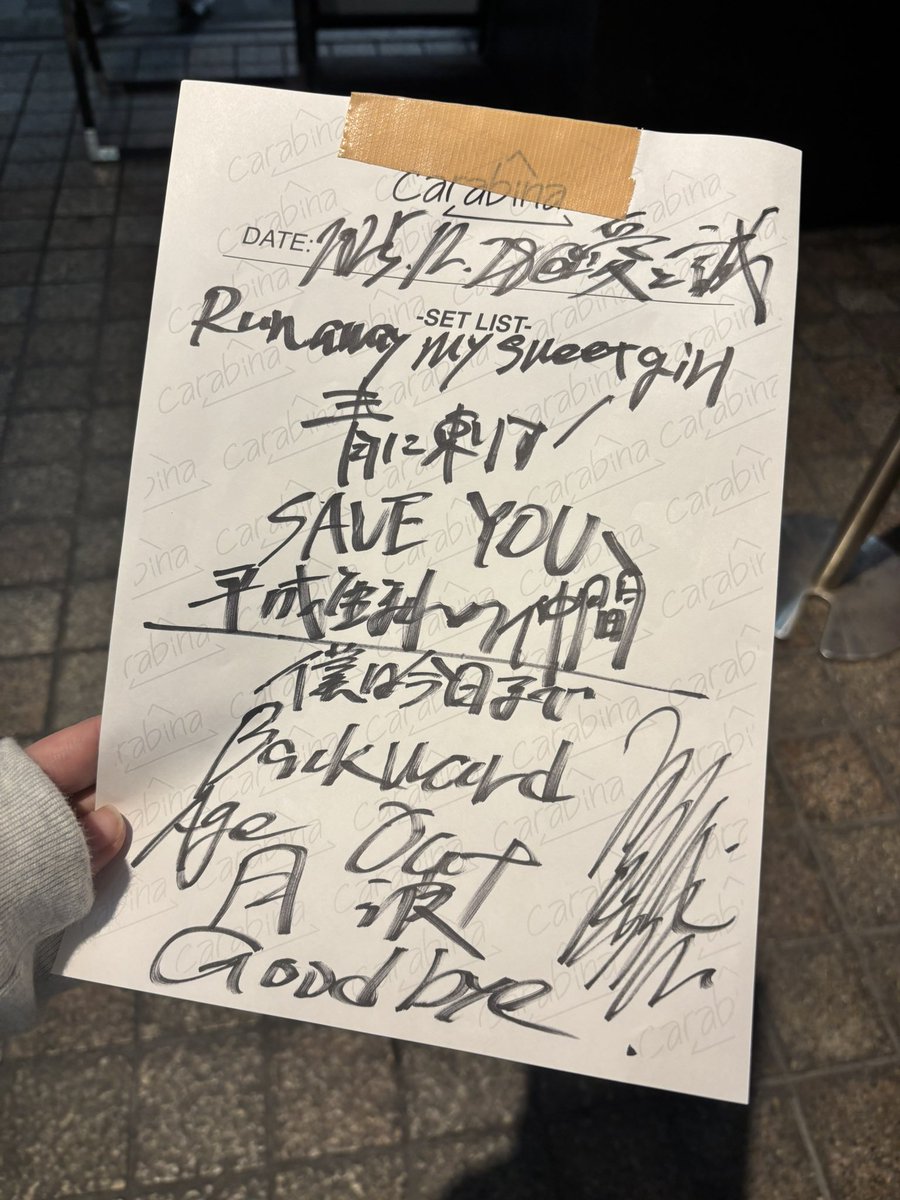 Carabina
DATE: 2025.12.28@愛と誠
-SET LIST-
Runaway my sweet girl
青に刺す
SAVE YOU
平成生まれの仲間
僕は今日まで
Backward
Age Out
月 波
Goodbye